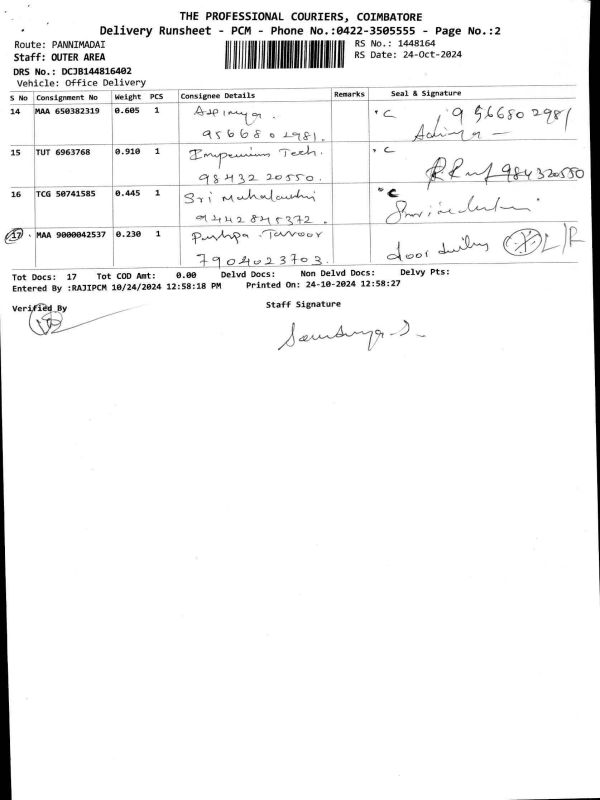 THE PROFESSIONAL COURIERS, COIMBATORE
Delivery Runsheet - PCM - Phone No.:0422-3505555 - Page No.:2
Route: PANNIMADAI
RS No.: 1448164
Staff: OUTER AREA
RS Date: 24-Oct-2024
DRS No.: DCJB144816402
Vehicle: Office Delivery
S No Consignment No Weight PCS Consignee Details Remarks Seal & Signature
14 MAA 650382319 0.605 1 C 9566802981
9566802981.
15 TUT 6963768 0.910 1 Imperium Tech. C
9843220550. 984320550
16 TCG 50741585 0.445 1 Sri Mahalakshmi C
9442845372.
17 MAA 9000042537 0.230 1 Pushpa door L/R
7904023703.
Tot Docs: 17 Tot COD Amt: 0.00 Delvd Docs: Non Delvd Docs: Delvy Pts:
Entered By :RAJIPCM 10/24/2024 12:58:18 PM Printed On: 24-10-2024 12:58:27
Verified By
Staff Signature